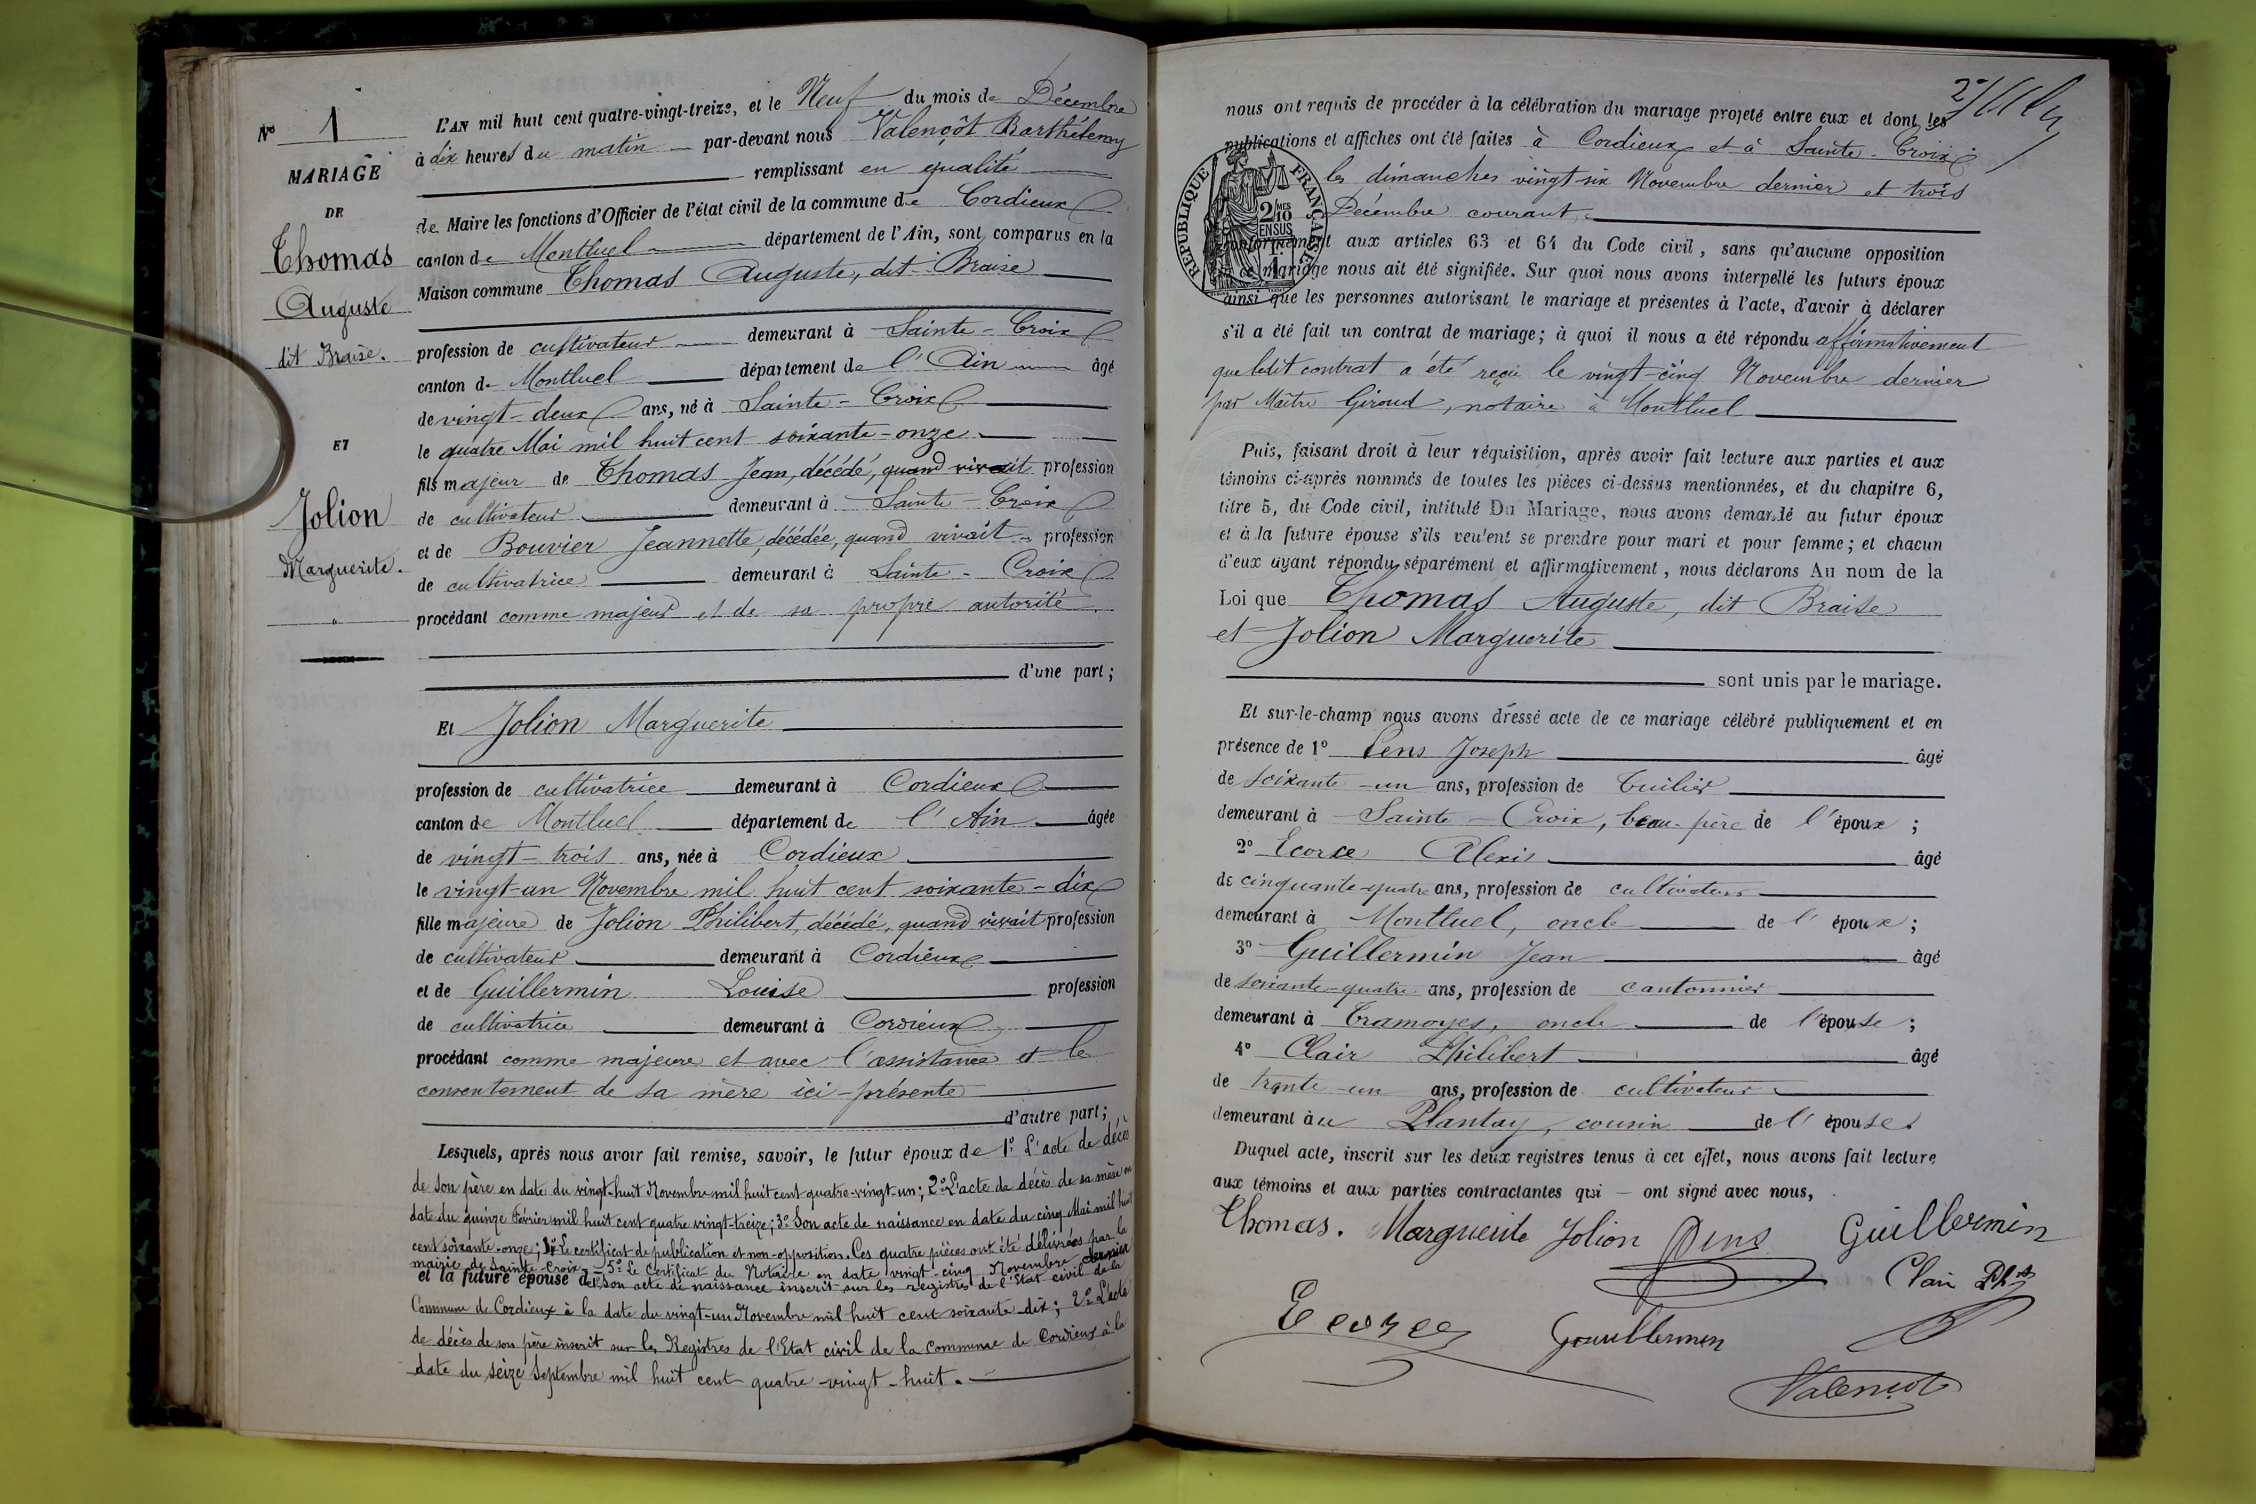 N° 1
MARIAGE
DE
Thomas
Auguste
dit Braise.
ET
Jolion
Marguerite.
L'AN mil huit cent quatre-vingt-treize, et le Neuf du mois de Décembre
à dix heures du matin par-devant nous Valençôt Barthélemy
remplissant en qualité
de Maire les fonctions d'Officier de l'état civil de la commune de Cordieux
canton de Montluel département de l'Ain, sont comparus en la
Maison commune Thomas Auguste, dit Braise
profession de cultivateur demeurant à Sainte-Croix
canton de Montluel département de l'Ain âgé
de vingt-deux ans, né à Sainte-Croix
le quatre Mai mil huit cent soixante-onze
fils majeur de Thomas Jean, décédé, quand vivait profession
de cultivateur demeurant à Sainte-Croix
et de Bouvier Jeannette, décédée, quand vivait profession
de cultivatrice demeurant à Sainte-Croix
procédant comme majeur et de sa propre autorité
d'une part;
Et Jolion Marguerite
profession de cultivatrice demeurant à Cordieux
canton de Montluel département de l'Ain âgée
de vingt-trois ans, née à Cordieux
le vingt-un Novembre mil huit cent soixante-dix
fille majeure de Jolion Philibert, décédé, quand vivait profession
de cultivateur demeurant à Cordieux
et de Guillermin Louise profession
de cultivatrice demeurant à Cordieux
procédant comme majeure et avec l'assistance et le
consentement de sa mère ici-présente
d'autre part;
Lesquels, après nous avoir fait remise, savoir, le futur époux de 1° L'acte de décès
de son père en date du vingt-huit Novembre mil huit cent quatre-vingt-un; 2° L'acte de décès de sa mère en
date du quinze Février mil huit cent quatre vingt-treize; 3° Son acte de naissance en date du cinq Mai mil huit
cent soixante-onze; 4° Le certificat de publication et non-opposition. Ces quatre pièces ont été délivrées par la
mairie de Sainte-Croix - 5° Le Certificat du Notaire en date vingt-cinq Novembre dernier
et la future épouse de 1° Son acte de naissance inscrit sur les registres de l'Etat civil de la
Commune de Cordieux à la date du vingt-un Novembre mil huit cent soixante-dix; 2° L'acte
de décès de son père inscrit sur les Registres de l'Etat civil de la commune de Cordieux à la
date du seize Septembre mil huit cent quatre-vingt-huit.
nous ont requis de procéder à la célébration du mariage projeté entre eux et dont les
publications et affiches ont été faites à Cordieux et à Sainte-Croix
les dimanches vingt-six Novembre dernier et trois
Décembre courant
RÉPUBLIQUE FRANÇAISE
2/10 MES
EN SUS
1
conformément aux articles 63 et 64 du Code civil, sans qu'aucune opposition
à ce mariage nous ait été signifiée. Sur quoi nous avons interpellé les futurs époux
ainsi que les personnes autorisant le mariage et présentes à l'acte, d'avoir à déclarer
s'il a été fait un contrat de mariage; à quoi il nous a été répondu affirmativement
que ledit contrat a été reçu le vingt-cinq Novembre dernier
par Maître Giroud, notaire à Montluel
Puis, faisant droit à leur réquisition, après avoir fait lecture aux parties et aux
témoins ci-après nommés de toutes les pièces ci-dessus mentionnées, et du chapitre 6,
titre 5, du Code civil, intitulé Du Mariage, nous avons demandé au futur époux
et à la future épouse s'ils veulent se prendre pour mari et pour femme; et chacun
d'eux ayant répondu séparément et affirmativement, nous déclarons Au nom de la
Loi que Thomas Auguste, dit Braise
et Jolion Marguerite
sont unis par le mariage.
Et sur-le-champ nous avons dressé acte de ce mariage célébré publiquement et en
présence de 1° Pens Joseph âgé
de soixante-un ans, profession de Tuilier
demeurant à Sainte-Croix, beau-père de l'époux;
2° Ecorce Alexis âgé
de cinquante-quatre ans, profession de cultivateur
demeurant à Montluel, oncle de l'époux;
3° Guillermin Jean âgé
de soixante-quatre ans, profession de cantonnier
demeurant à Tramoyes, oncle de l'épouse;
4° Clair Philibert âgé
de trente-un ans, profession de cultivateur
demeurant au Plantay, cousin de l'épouse.
Duquel acte, inscrit sur les deux registres tenus à cet effet, nous avons fait lecture
aux témoins et aux parties contractantes qui - ont signé avec nous,
Thomas. Marguerite Jolion Pens Guillermin
Clair Pht
Ecorce Gouillermin
Valençot